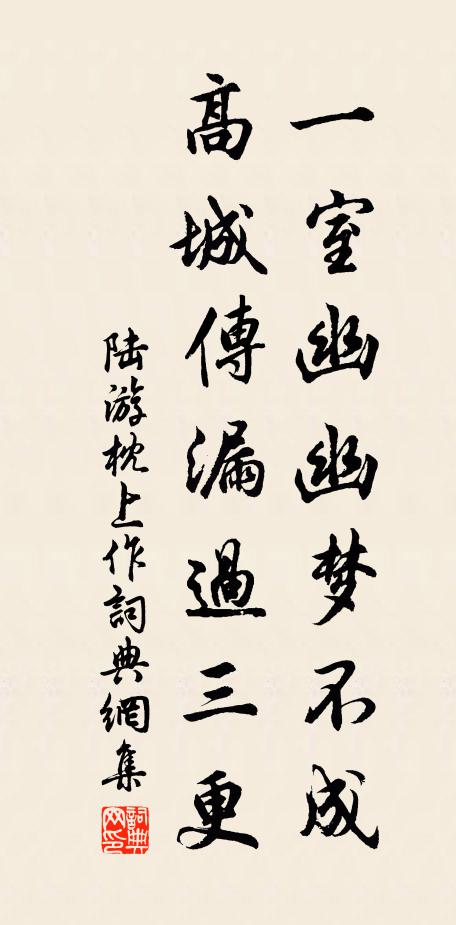 一室幽幽梦不成
高城傳漏過三更
陆游枕上作詞典網集
詞典网印